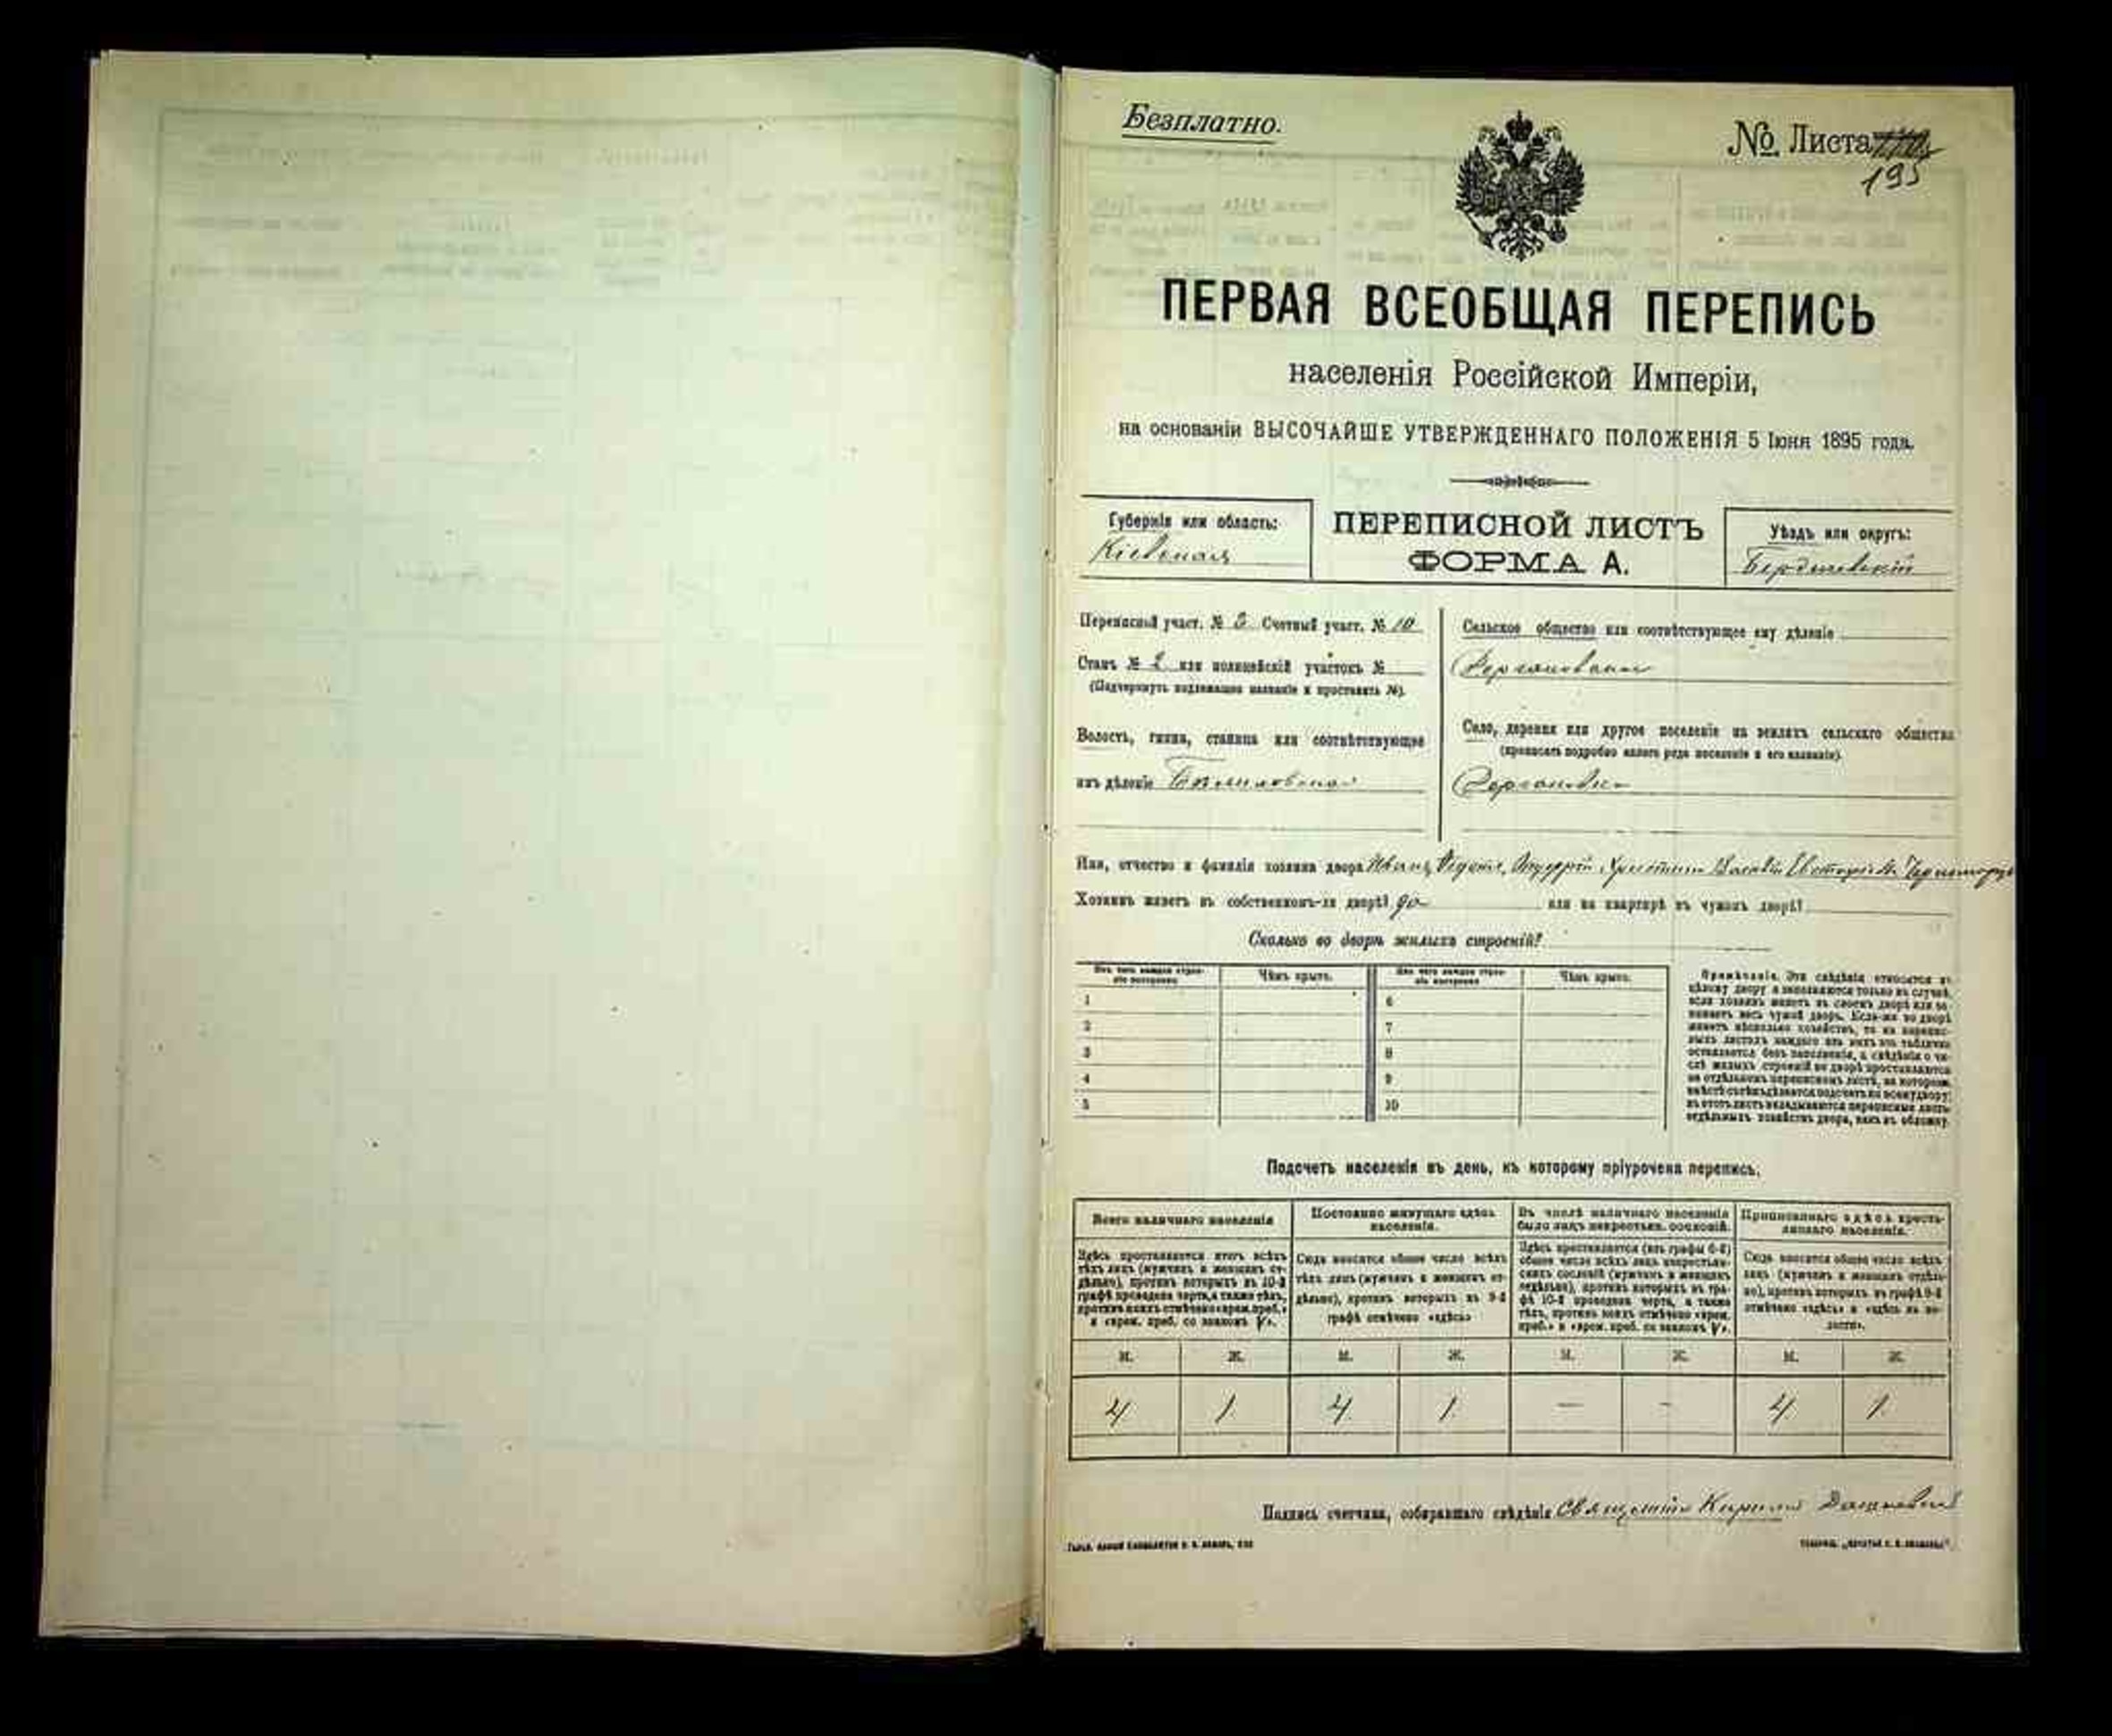 Безплатно.
№ Листа
195
ПЕРВАЯ ВСЕОБЩАЯ ПЕРЕПИСЬ
населенія Россійской Имперіи,
на основаніи ВЫСОЧАЙШЕ УТВЕРЖДЕННАГО ПОЛОЖЕНІЯ 5 Іюня 1895 года.
Губернія или область:
Кіевская
ПЕРЕПИСНОЙ ЛИСТЪ
ФОРМА А.
Уѣздъ или округъ:
Бердичевскій
Переписный участ. № 3 Счетный участ. № 10
Станъ № 2 или полицейскій участокъ №
(Подчеркнуть надлежащее названіе и проставить №).
Волость, гмина, станица или соотвѣтствующее
имъ дѣленіе
Сельское общество или соотвѣтствующее ему дѣленіе
Село, деревня или другое поселеніе на земляхъ сельскаго общества
(прописать подробно какого рода поселеніе и его названіе).
Имя, отчество и фамилія хозяина двора Иванъ
Хозяинъ живетъ въ собственномъ-ли дворѣ? да или на квартирѣ въ чужомъ дворѣ?
Сколько во дворѣ жилыхъ строеній?
Изъ чего каждое строе-
ніе построено
Чѣмъ крыто.
Изъ чего каждое строе-
ніе построено
Чѣмъ крыто.
1 6
2 7
3 8
4 9
5 10
Примѣчаніе. Эти свѣдѣнія относятся къ
цѣлому двору и заполняются только въ случаѣ,
если хозяинъ живетъ въ своемъ дворѣ или за-
нимаетъ весь чужой дворъ. Если-же во дворѣ
живетъ нѣсколько хозяйствъ, то на перепис-
ныхъ листахъ каждаго изъ нихъ эта табличка
оставляется безъ заполненія, а свѣдѣнія о чи-
слѣ жилыхъ строеній во дворѣ проставляются
на отдѣльномъ переписномъ листѣ, на которомъ
вмѣстѣ съ тѣмъ дѣлается подсчетъ по всему двору;
въ этотъ листъ вкладываются переписные листы
отдѣльныхъ хозяйствъ двора, какъ въ обложку.
Подсчетъ населенія въ день, къ которому пріурочена перепись.
Всего наличнаго населенія
Постоянно живущаго здѣсь
населенія.
Въ числѣ наличнаго населенія
было лицъ некрестьян. сословій.
Приписаннаго здѣсь кресть-
янскаго населенія.
Здѣсь проставляется итогъ всѣхъ
тѣхъ лицъ (мужчинъ и женщинъ от-
дѣльно), противъ которыхъ въ 10-й
графѣ проведена черта, а также тѣхъ,
противъ коихъ отмѣчено «врем. преб.»
и «врем. преб. со знакомъ V».
Сюда вносится общее число всѣхъ
тѣхъ лицъ (мужчинъ и женщинъ от-
дѣльно), противъ которыхъ въ 9-й
графѣ отмѣчено «здѣсь»
Здѣсь проставляется (изъ графы 6-й)
общее число всѣхъ лицъ некрестьян-
скихъ сословій (мужчинъ и женщинъ
отдѣльно), противъ которыхъ въ гра-
фѣ 10-й проведена черта, а также
тѣхъ, противъ коихъ отмѣчено «врем.
преб.» и «врем. преб. со знакомъ V».
Сюда вносится общее число всѣхъ
лицъ (мужчинъ и женщинъ отдѣль-
но), противъ которыхъ въ графѣ 8-й
отмѣчено «здѣсь» и «здѣсь въ во-
лости».
М. Ж. М. Ж. М. Ж. М. Ж.
4 1 4 1 — - 4 1
Подпись счетчика, собиравшаго свѣдѣнія Священникъ Кириллъ